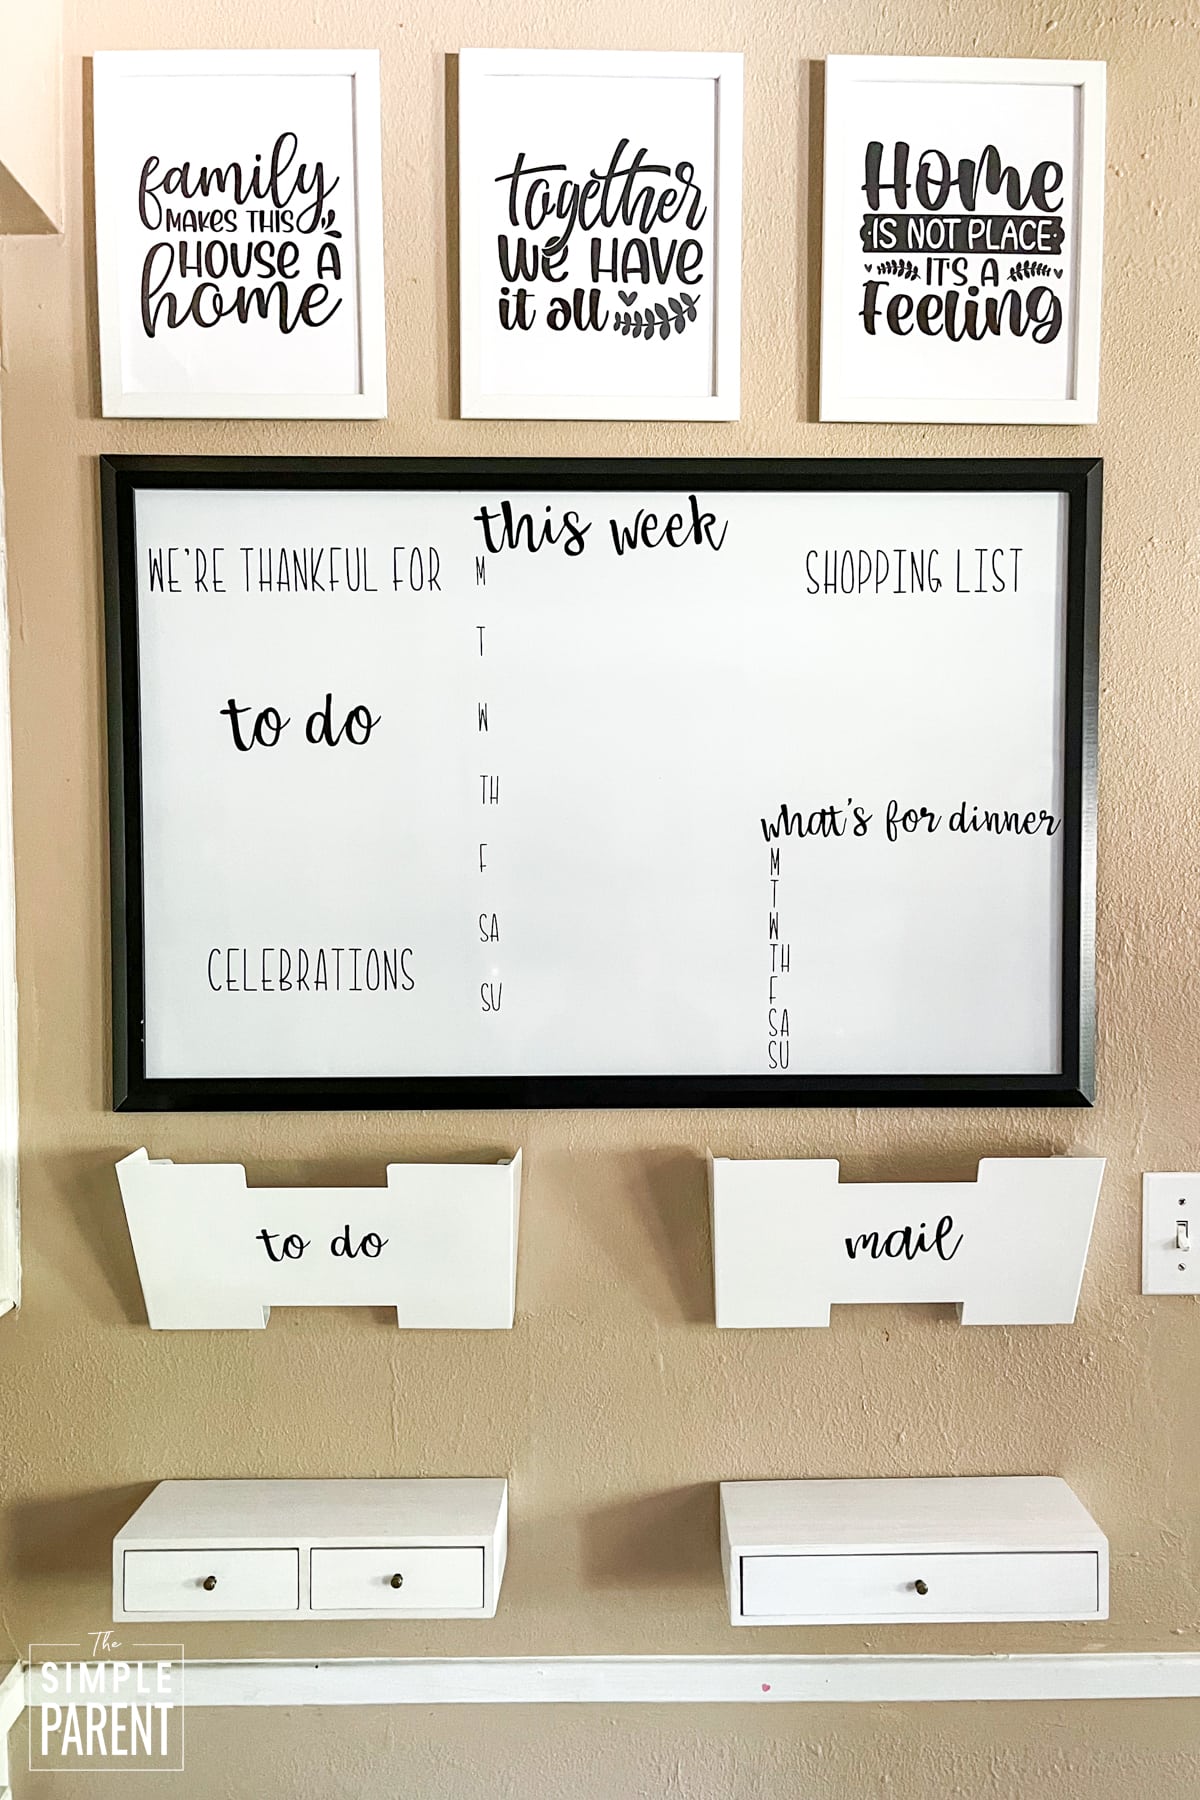 family
MAKES THIS
HOUSE A
home
together
WE HAVE
it all
HOME
IS NOT PLACE
IT'S A
Feeling
this week
WE'RE THANKFUL FOR
M
T
W
TH
F
SA
SU
SHOPPING LIST
to do
what's for dinner
M
T
W
TH
F
SA
SU
CELEBRATIONS
to do
mail
The
SIMPLE
PARENT